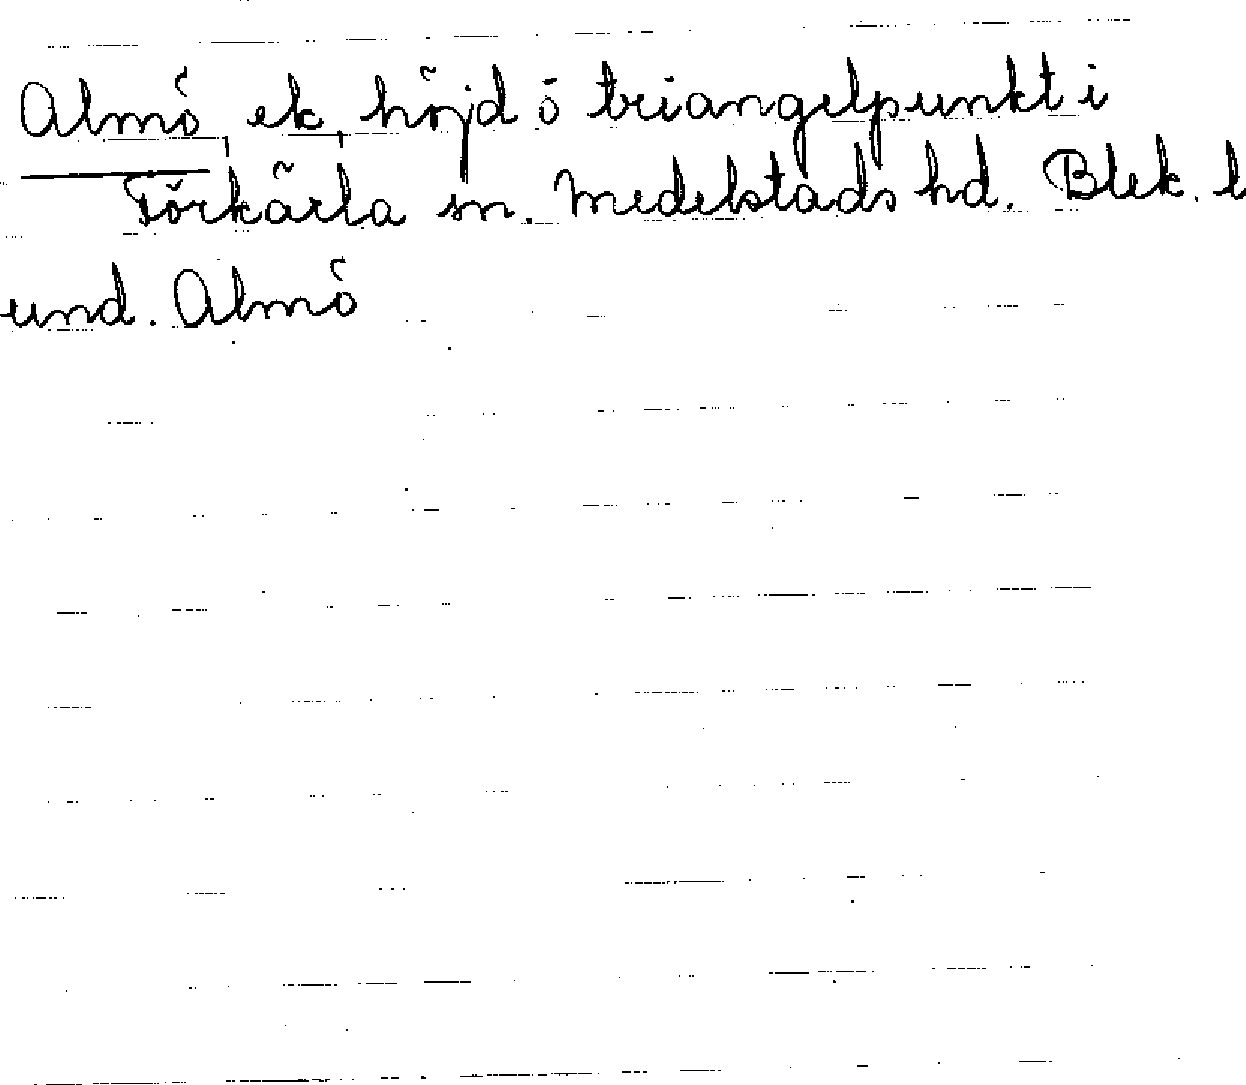 Almö, ek, höjd o triangelpunkt i
Förkärla sn. Medelstads hd. Blek. l
und. Almö